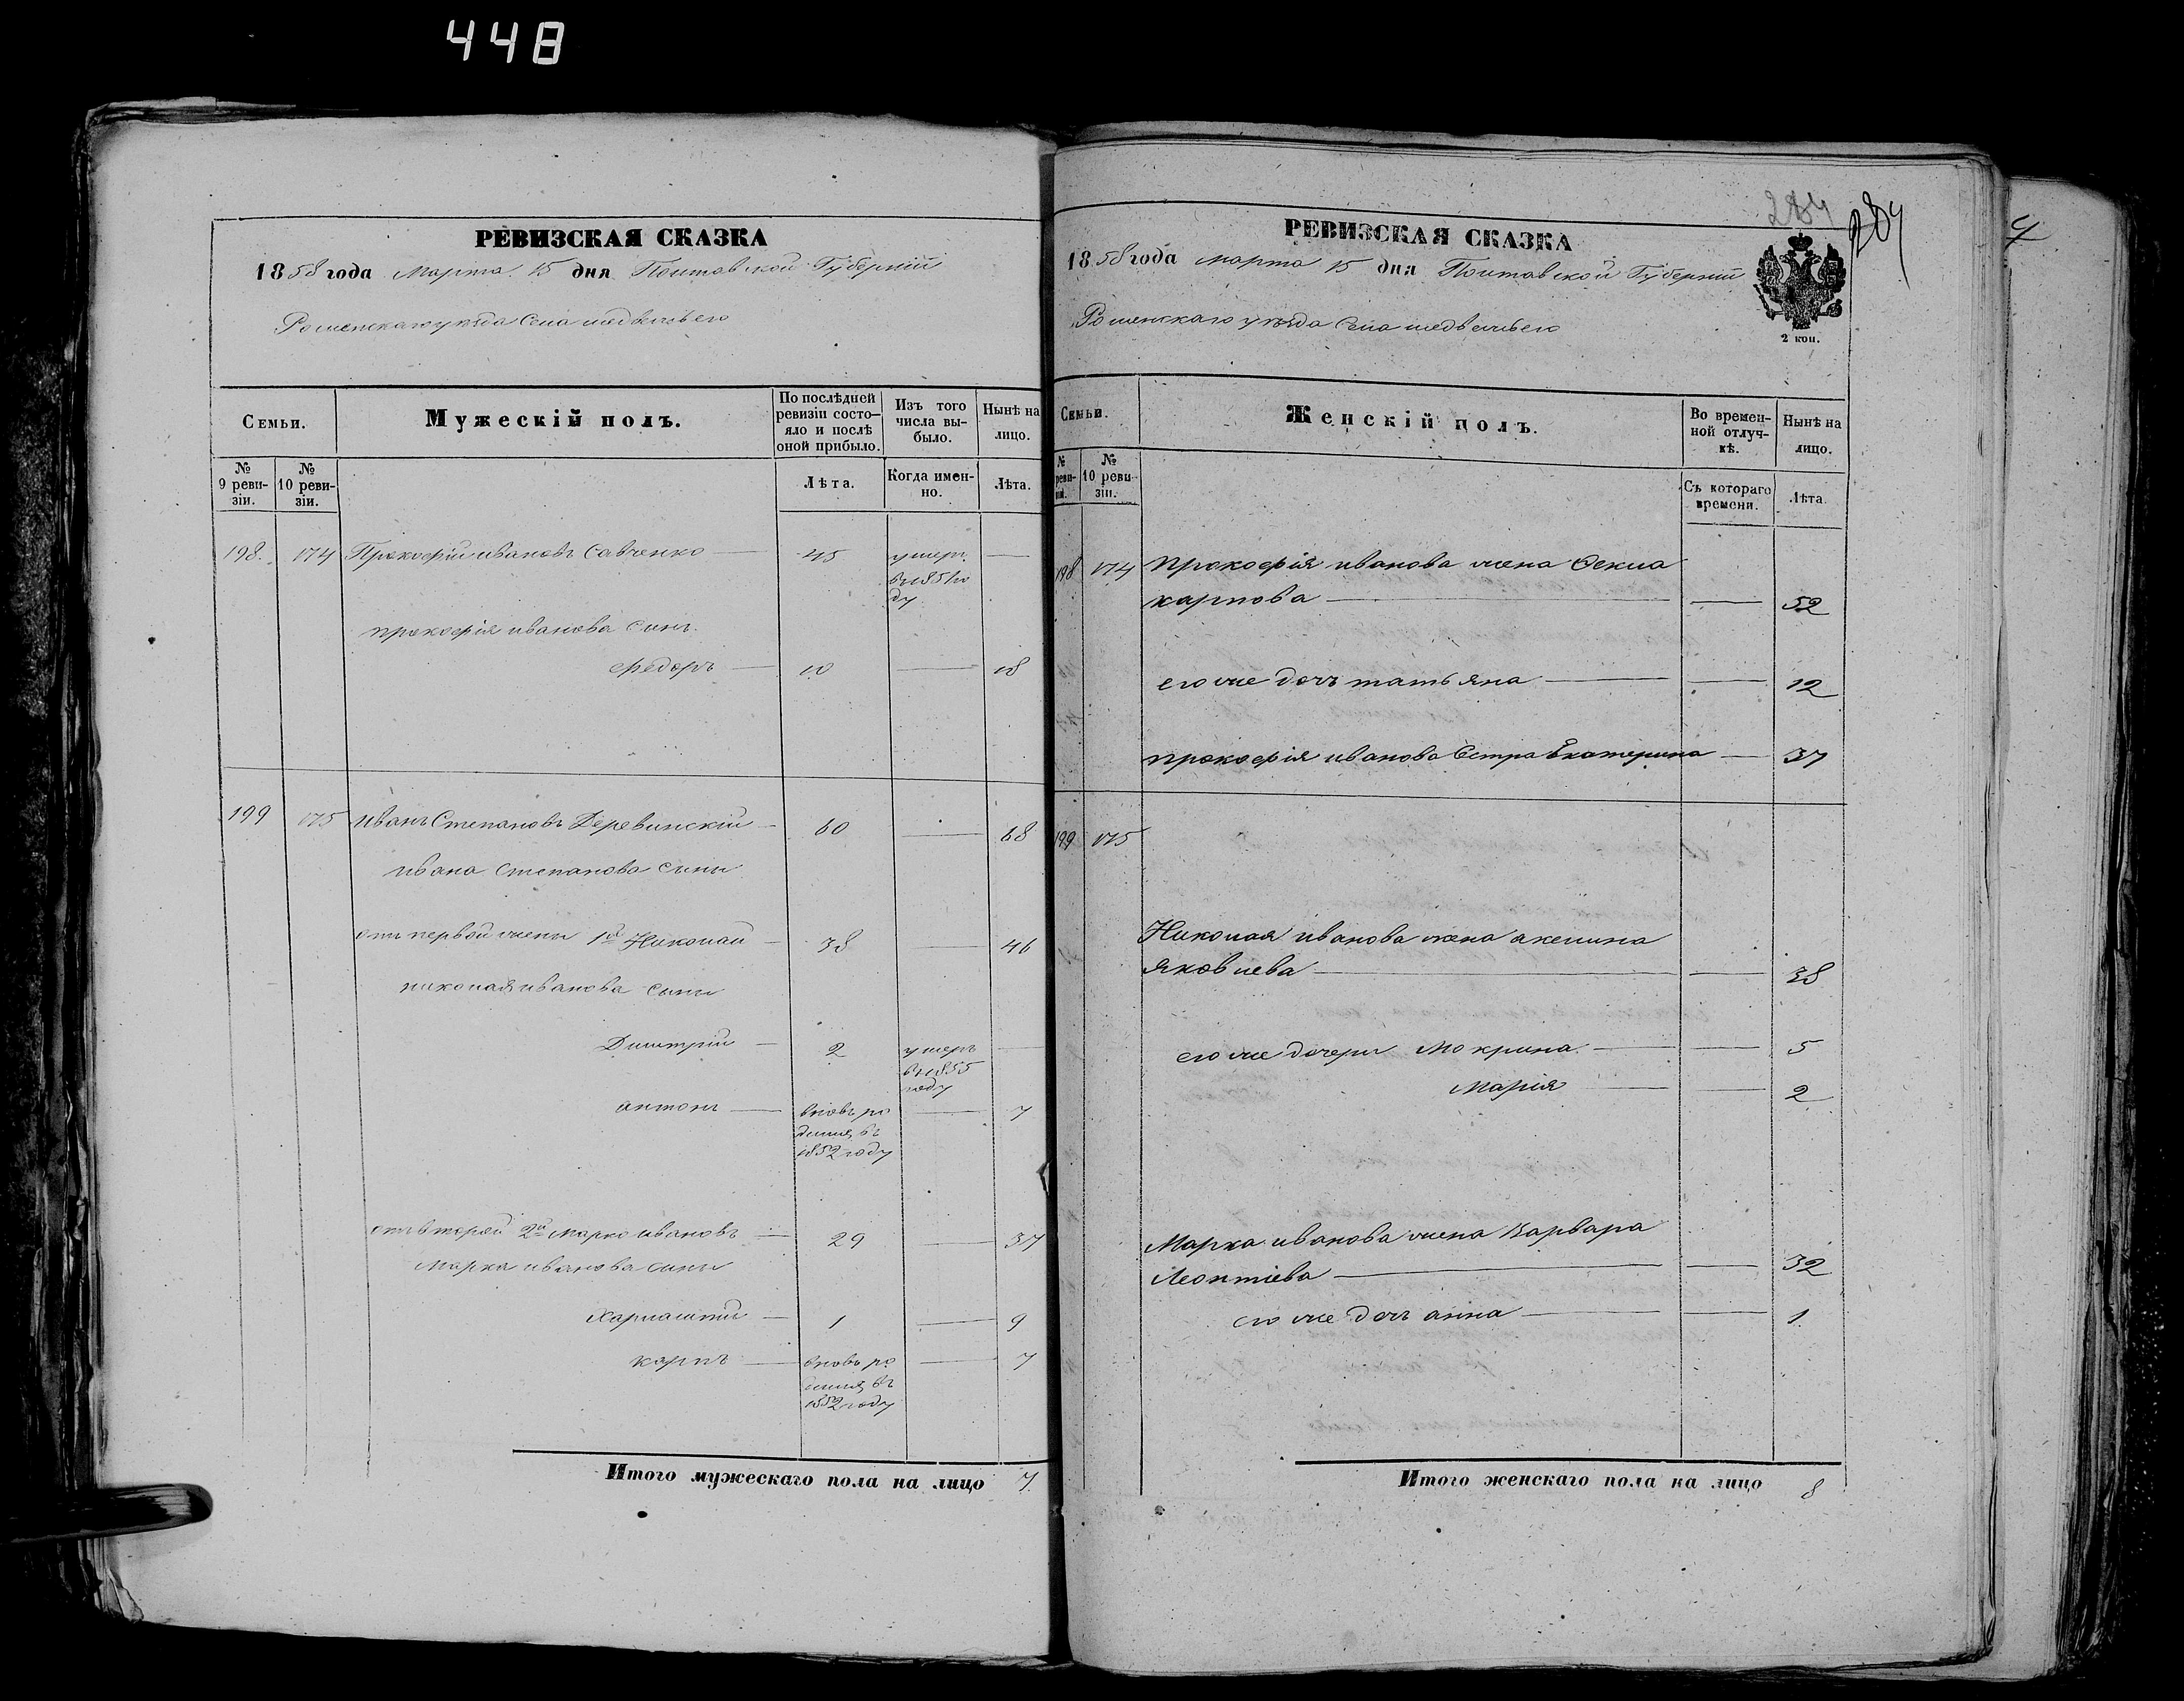 448
РЕВИЗСКАЯ СКАЗКА
1858 года Марта 15 дня Полтавской Губерній
Роменскаго уезда Села медвежьего
Семьи.
Мужескій полъ.
По послѣдней ревизіи состо-
яло и послѣ
оной прибыло.
Изъ того
числа вы-
было.
Нынѣ на
лицо.
№
9 реви-
зіи.
№
10 реви-
зіи.
Лѣта.
Когда имен-
но.
Лѣта.
198. 174 Прокофій ивановъ Савченко — 45 умеръ —
въ 1851 го
ду
прокофія иванова Сынъ
федоръ — 10 — 18
199 175 иванъ Степановъ Деревинскій — 60 — 68
ивана Степанова Сыны
отъ первой жены 1й Николай — 38 — 46
николая иванова Сыны
Димитрій — 2 умеръ —
въ 1855
году
антонъ — вновь ро — 7
дился въ
1852 году
отъ второй 2й Марко ивановъ — 29 — 37
Марка иванова Сыны
Харлампій — 1 — 9
карпъ — вновь ро — 7
дился въ
1852 году
Итого мужескаго пола на лицо 7.
284
284
РЕВИЗСКАЯ СКАЗКА
1858 года марта 15 дня Полтавской Губерній
Роменскаго уезда Села медвежьего
2 коп.
Семьи.
Женскій полъ.
Во времен-
ной отлуч-
кѣ.
Нынѣ на
лицо.
№
реви-
зіи.
№
10 реви-
зіи.
Съ котораго
времени.
Лѣта.
198 174 прокофія иванова жена Фекла
карпова — — 52
его же дочь татьяна — — 12
прокофія иванова Сестра Екатерина — 37
199 175
Николая иванова жена акелина
Яковлева — — 38
его же дочери Мокрина — — 5
Марія — — 2
Марка иванова жена Варвара
Леонтіева — — 32
его же дочь анна — — 1
Итого женскаго пола на лицо 8